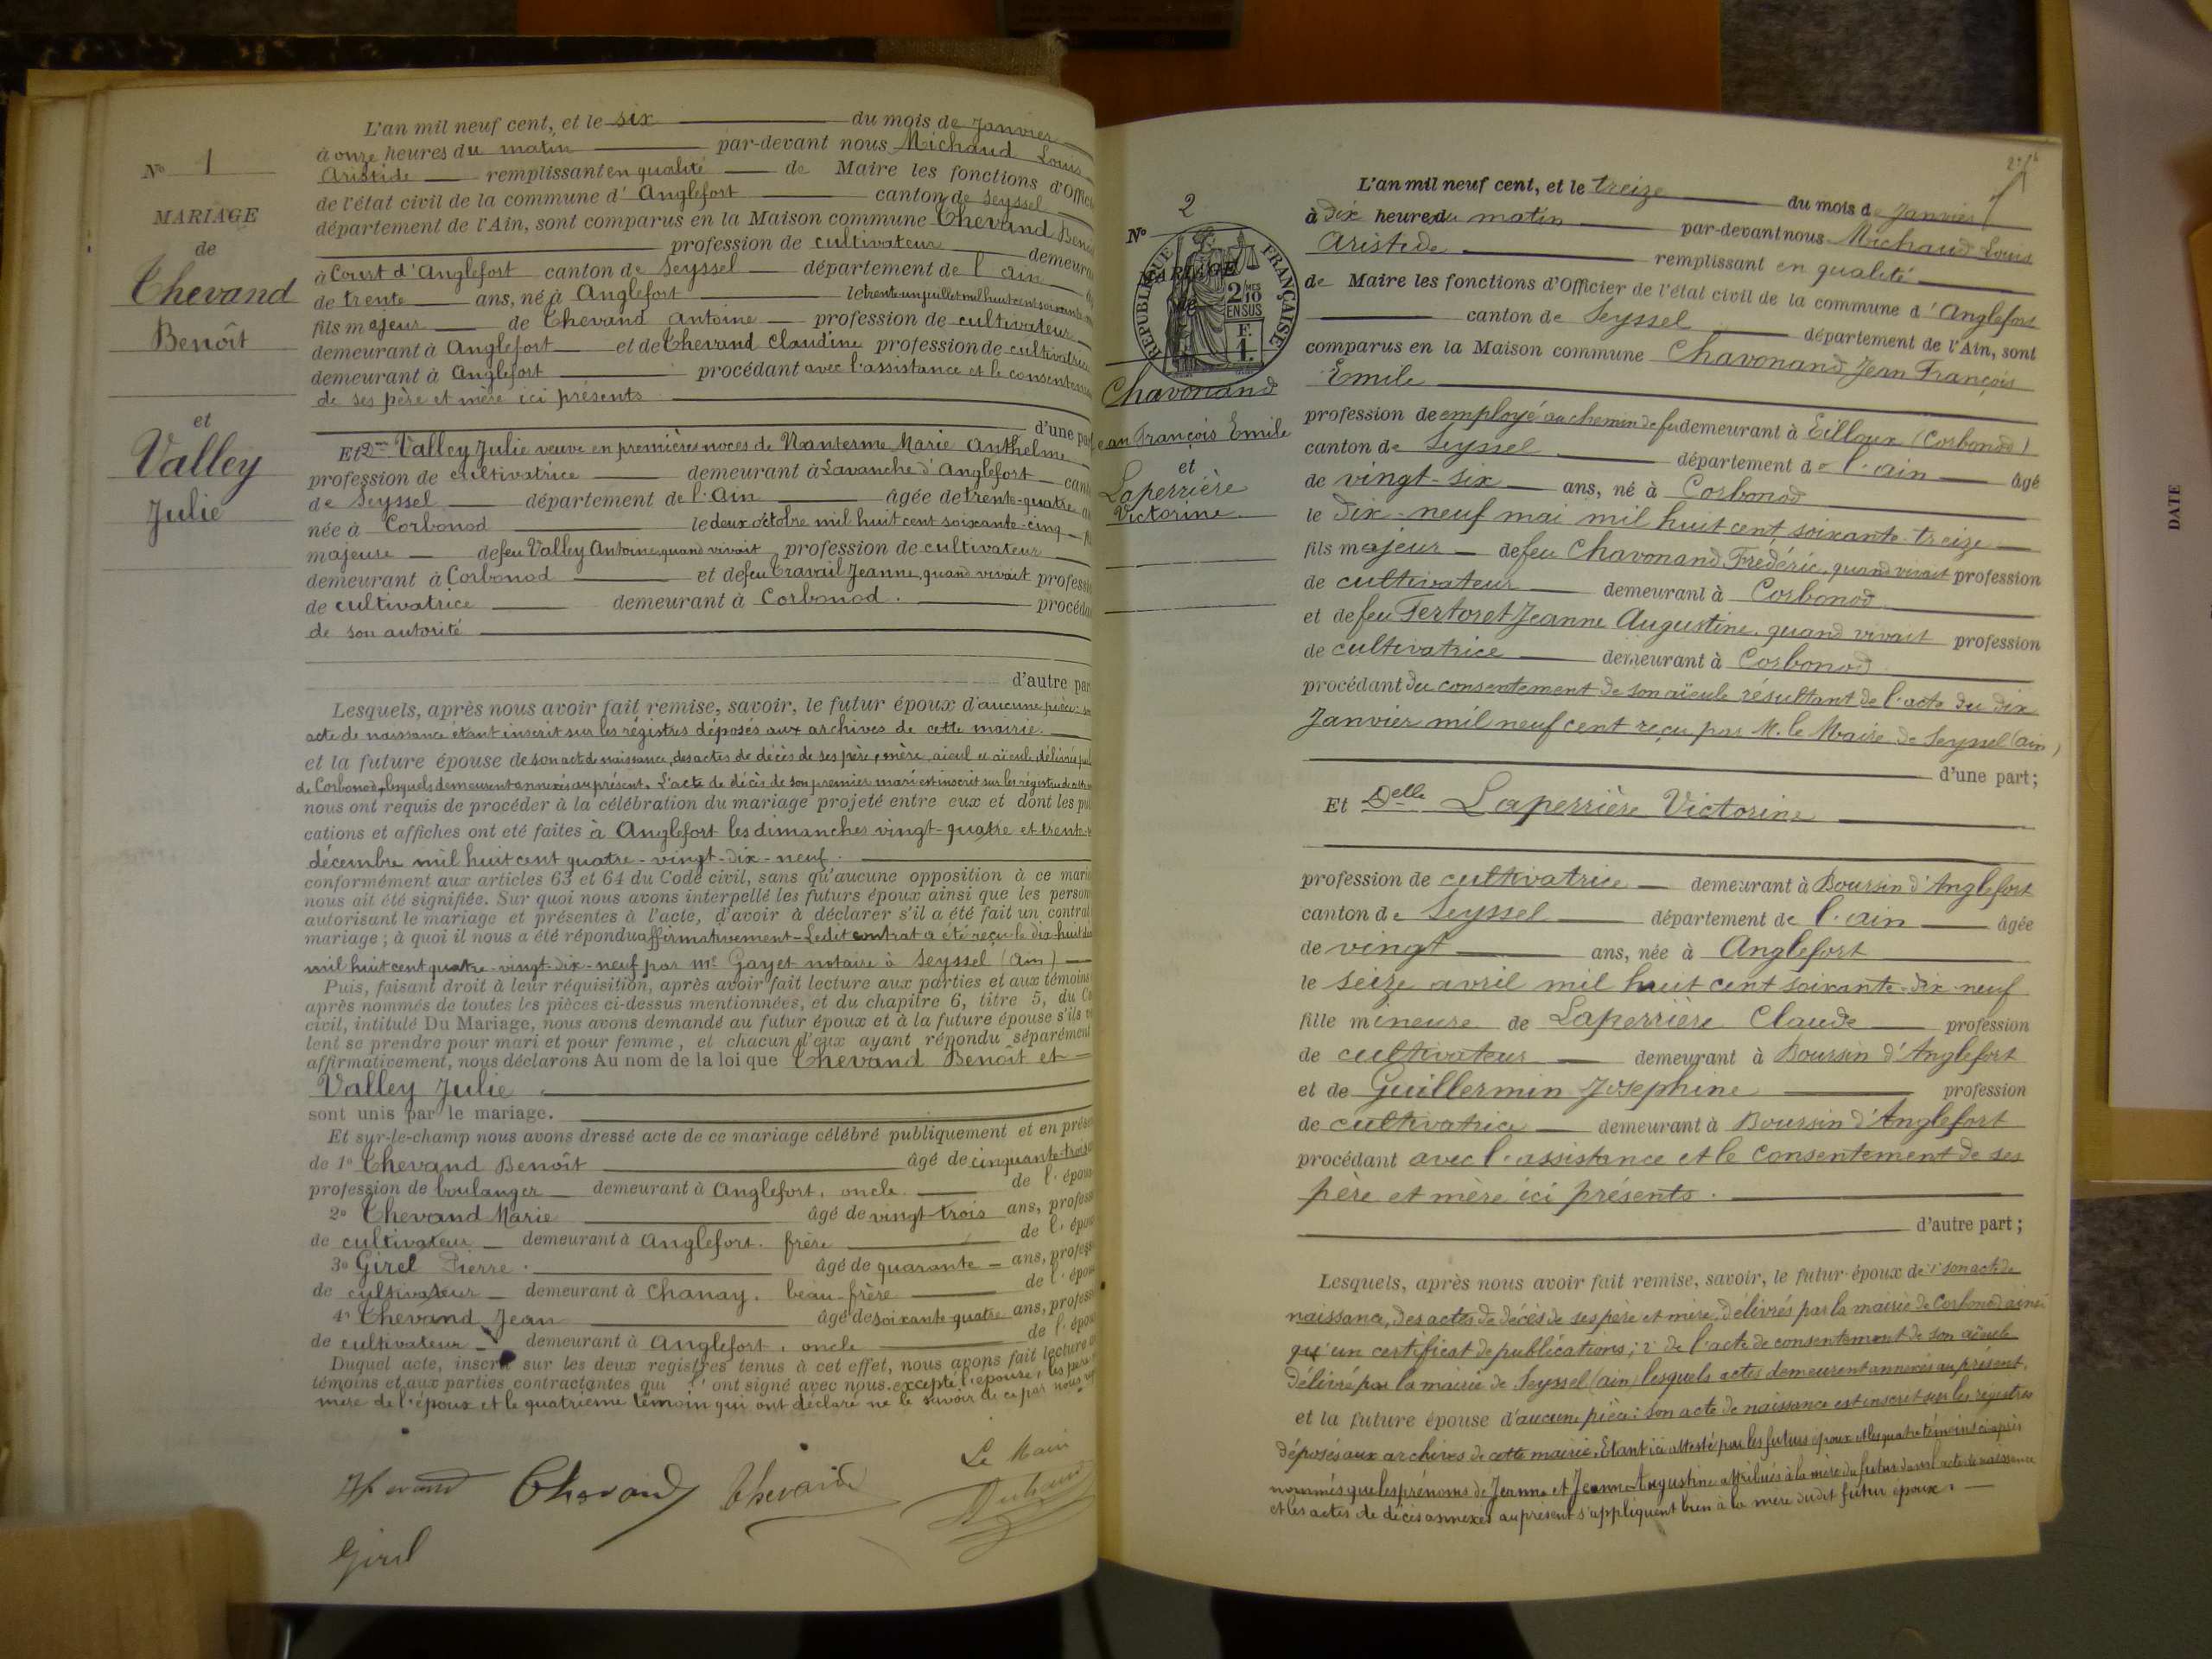 N° 1
MARIAGE
de
Chevand
Benoît
et
Valley
Julie
L'an mil neuf cent, et le six du mois de Janvier
à onze heures du matin par-devant nous Michaud Louis
Aristide remplissant en qualité de Maire les fonctions d'Offici
de l'état civil de la commune d'Anglefort canton de Seyssel
département de l'Ain, sont comparus en la Maison commune Chevand Benoi
profession de cultivateur demeura
à Court d'Anglefort canton de Seyssel département de l'ain
de trente ans, né à Anglefort le trente un juillet mil huit cent soixante
fils majeur de Chevand Antoine profession de cultivateur
demeurant à Anglefort et de Chevand Claudine profession de cultivatrice
demeurant à Anglefort procédant avec l'assistance et le consentem
de ses père et mère ici présents
d'une part
Et Dme Valley Julie veuve en premières noces de Nanterme Marie Anthelme
profession de cultivatrice demeurant à Lavanche d'Anglefort cant
de Seyssel département de l'Ain âgée de trente-quatre a
née à Corbonod le deux octobre mil huit cent soixante-cinq
majeure de feu Valley Antoine, quand vivait profession de cultivateur
demeurant à Corbonod et de feu Travail Jeanne, quand vivait professi
de cultivatrice demeurant à Corbonod. procéda
de son autorité
d'autre par
Lesquels, après nous avoir fait remise, savoir, le futur époux d'aucune pièce: son
acte de naissance étant inscrit sur les régistres déposés aux archives de cette mairie.
et la future épouse de son act de naissance, des actes de décès de ses père, mère, aïeul et aïeule délivrés
de Corbonod, lesquels demeurent annexés au présent. L'acte de décès de son premier mari est inscrit sur les régistres de
nous ont requis de procéder à la célébration du mariage projeté entre eux et dont les pu
cations et affiches ont eté faites à Anglefort les dimanches vingt-quatre et trente
décembre mil huit cent quatre-vingt-dix-neuf.
conformément aux articles 63 et 64 du Code civil, sans qu'aucune opposition à ce maria
nous ait été signifiée. Sur quoi nous avons interpellé les futurs époux ainsi que les person
autorisant le mariage et présentes à l'acte, d'avoir à déclarer s'il a été fait un contrat
mariage; à quoi il nous a été répondu affirmativement - Ledit contrat a été reçu le dix-huit
mil huit cent quatre-vingt-dix-neuf par Me Gayet notaire à Seyssel (Ain)
Puis, faisant droit à leur réquisition, après avoir fait lecture aux parties et aux témoins
après nommés de toutes les pièces ci-dessus mentionnées, et du chapitre 6, titre 5, du Co
civil, intitulé Du Mariage, nous avons demandé au futur époux et à la future épouse s'ils v
lent se prendre pour mari et pour femme, et chacun d'eux ayant répondu séparément
affirmativement, nous déclarons Au nom de la loi que Chevand Benoît et
Valley Julie
sont unis par le mariage.
Et sur-le-champ nous avons dressé acte de ce mariage célébré publiquement et en prése
de 1° Chevand Benoît âgé de cinquante-trois
profession de boulanger demeurant à Anglefort, oncle de l'épou
2° Chevand Marie âgé de vingt-trois ans, profess
de cultivateur demeurant à Anglefort. frère de l'épou
3° Girel Pierre. âgé de quarante ans, profess
de cultivateur demeurant à Chanay. beau-frère de l'épou
4° Chevand Jean âgé de soixante-quatre ans, profess
de cultivateur demeurant à Anglefort, oncle de l'épou
Duquel acte, inscrit sur les deux registres tenus à cet effet, nous avons fait lecture
témoins et aux parties contractantes qui l'ont signé avec nous. excepté l'épouse, les père
mère de l'époux et le quatrième témoin qui ont déclaré ne le savoir de ce par nous
Le Maire
Chevand Chevand
Girel
N° 2
MARIAGE
de
RÉPUBLIQUE FRANÇAISE
2 MES
10
EN SUS
F.
1.
Chavonand
ean François Emile
et
Laperrière
Victorine
L'an mil neuf cent, et le treize du mois de Janvier
à dix heures du matin par-devant nous Michaud Louis
Aristide remplissant en qualité
de Maire les fonctions d'Officier de l'état civil de la commune d'Anglefort
canton de Seyssel département de l'Ain, sont
comparus en la Maison commune Chavonand Jean François
Emile
profession de employé au chemin de fer demeurant à Eilloux (Corbonod)
canton de Seyssel département de l'ain âgé
de vingt-six ans, né à Corbonod
le dix-neuf mai mil huit cent soixante-treize
fils majeur de feu Chavonand Frédéric, quand vivait profession
de cultivateur demeurant à Corbonod
et de feu Tertoret Jeanne Augustine, quand vivait profession
de cultivatrice demeurant à Corbonod
procédant du consentement de son aïeule résultant de l'acte du dix
Janvier mil neuf cent reçu par M. le Maire de Seyssel (ain)
d'une part;
Et Delle Laperrière Victorine
profession de cultivatrice demeurant à Boursin d'Anglefort
canton de Seyssel département de l'ain âgée
de vingt ans, née à Anglefort
le seize avril mil huit cent soixante-dix-neuf
fille mineure de Laperrière Claude profession
de cultivateur demeurant à Boursin d'Anglefort
et de Guillermin Josephine profession
de cultivatrice demeurant à Boursin d'Anglefort
procédant avec l'assistance et le consentement de ses
père et mère ici présents.
d'autre part;
Lesquels, après nous avoir fait remise, savoir, le futur époux de 1° son acte de
naissance, des actes de décès de ses père et mère, délivrés par la mairie de Corbonod ainsi
qu'un certificat de publications; 2° de l'acte de consentement de son aïeule
délivré par la mairie de Seyssel (ain) lesquels actes demeurent annexés au présent.
et la future épouse d'aucune pièce: son acte de naissance est inscrit sur les régistres
déposés aux archives de cette mairie. Etant ici attesté par les futurs époux et les quatre témoins ci-après
nommés que les prénoms de Jeanne et Jeanne Augustine attribués à la mère du futur dans l'acte de naissance
et les actes de décès annexés au présent s'appliquent bien à la mère dudit futur époux.
DATE